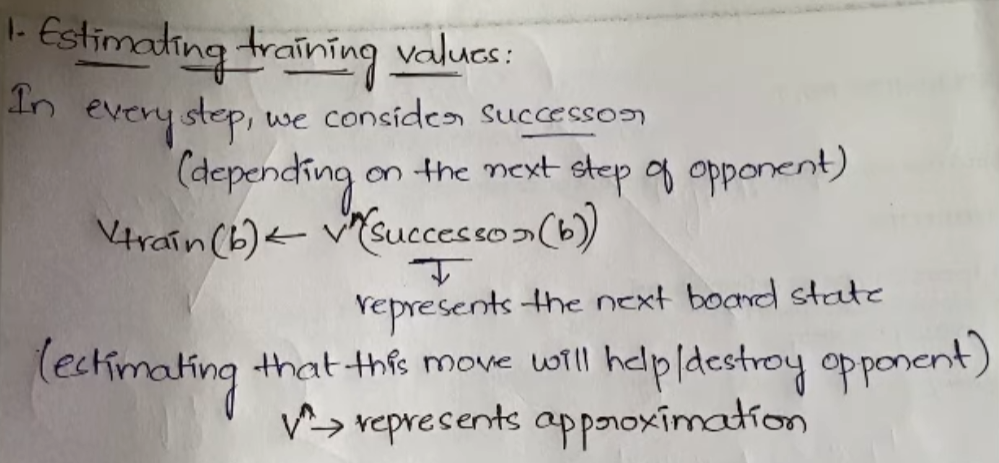 1. Estimating training values:
In every step, we consider successor
(depending on the next step of opponent)
Vtrain(b) ← V^(successor(b))
↓
represents the next board state
(estimating that this move will help/destroy opponent)
V^ → represents approximation